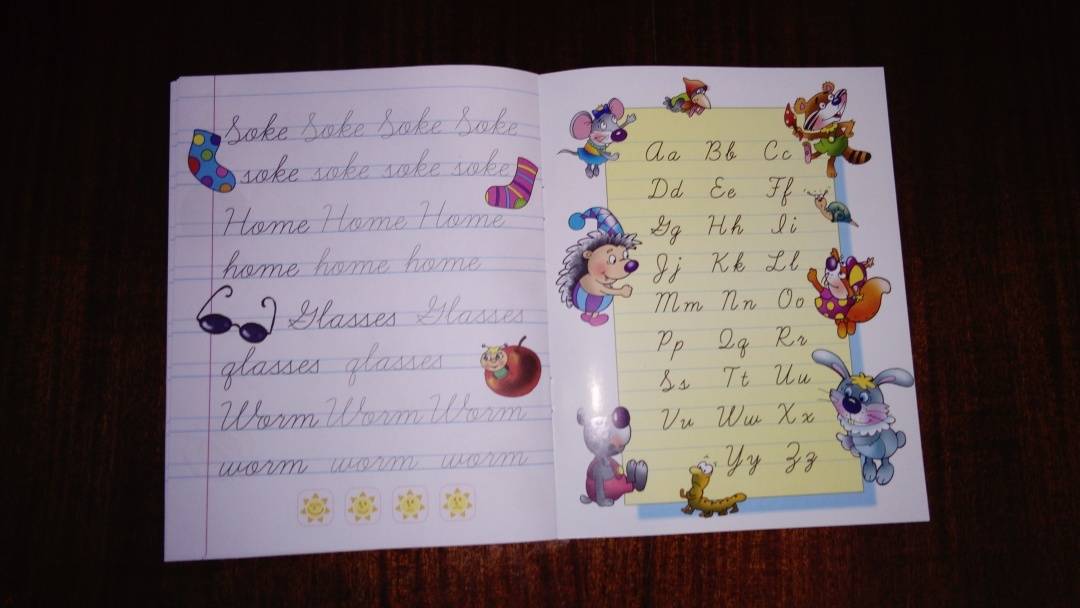 Soke Soke Soke Soke
soke soke soke soke
Home Home Home
home home home
Glasses Glasses
glasses glasses
Worm Worm Worm
worm worm worm
Aa Bb Cc
Dd Ee Ff
Gg Hh Ii
Jj Kk Ll
Mm Nn Oo
Pp Qq Rr
Ss Tt Uu
Vv Ww Xx
Yy Zz